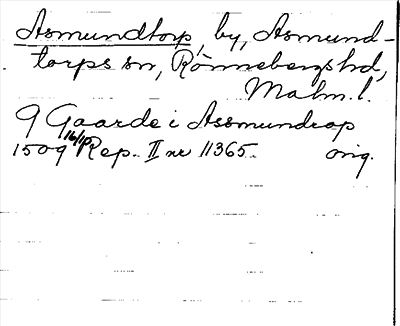 Asmundtorp, by, Asmund-
torps sn, Rönnebergs hd,
Malm. l.
9 Gaarde i Assmundrap
1509 16/10 Rep. II nr 11365. orig.